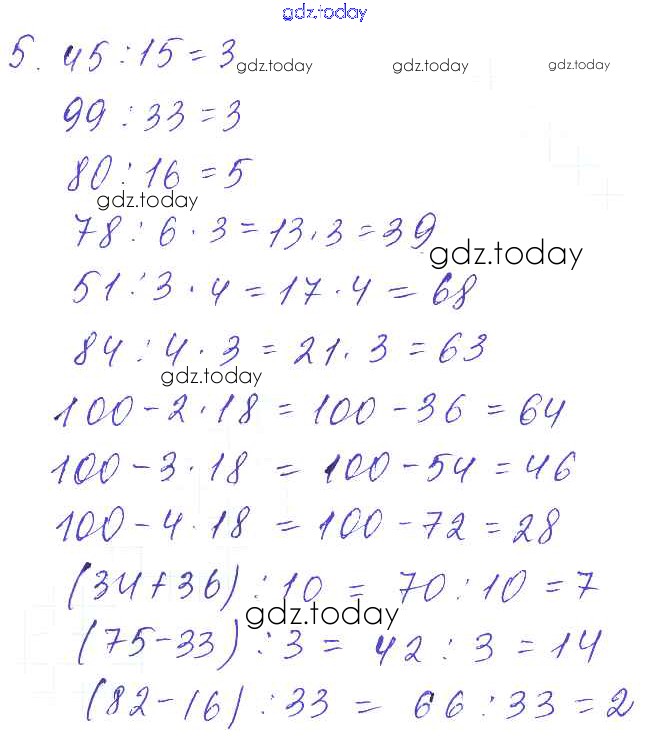 gdz.today
5. 45 : 15 = 3
gdz.today gdz.today gdz.today
99 : 33 = 3
80 : 16 = 5
gdz.today
78 : 6 · 3 = 13 · 3 = 39
gdz.today
51 : 3 · 4 = 17 · 4 = 68
84 : 4 · 3 = 21 · 3 = 63
gdz.today
100 - 2 · 18 = 100 - 36 = 64
100 - 3 · 18 = 100 - 54 = 46
100 - 4 · 18 = 100 - 72 = 28
(34 + 36) : 10 = 70 : 10 = 7
gdz.today
(75 - 33) : 3 = 42 : 3 = 14
(82 - 16) : 33 = 66 : 33 = 2